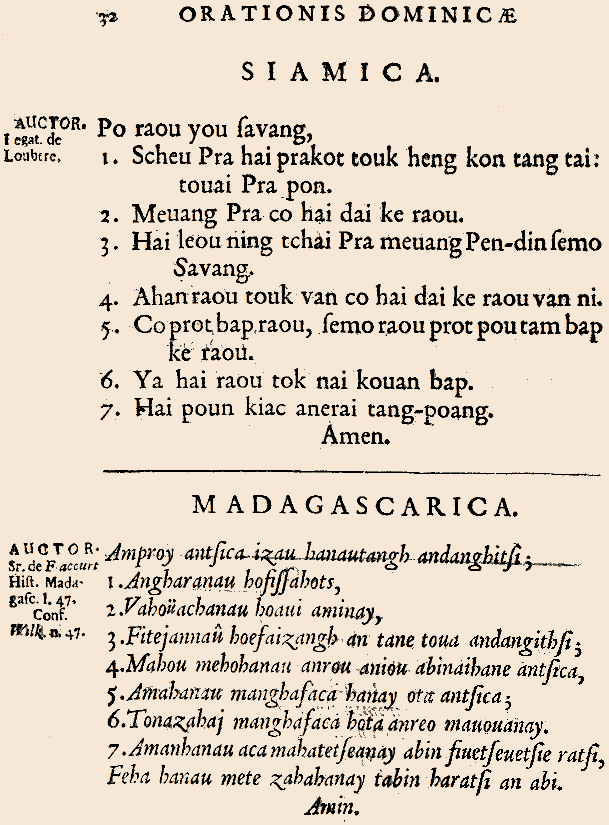 32 ORATIONIS DOMINICÆ
SIAMICA.
AUCTOR.
Legat. de
Loubere.
Po raou you ſavang,
1. Scheu Pra hai prakot touk heng kon tang tai:
touai Pra pon.
2. Meuang Pra co hai dai ke raou.
3. Hai leou ning tchai Pra meuang Pen-din ſemo
Savang.
4. Ahan raou touk van co hai dai ke raou van ni.
5. Co prot bap raou, ſemo raou prot pou tam bap
ke raou.
6. Ya hai raou tok nai kouan bap.
7. Hai poun kiac anerai tang-poang.
Amen.
MADAGASCARICA.
AUCTOR.
Sr. de Flaccurt
Hiſt. Mada-
gaſc. l. 47.
Conf.
Wilk. n. 47.
Amproy antſica izau hanautangh andanghitſi;
1. Angharanau hofiſſahots,
2. Vahoüachanau hoaui aminay,
3. Fitejannaû hoefaizangh an tane toua andangithſi;
4. Mahou mehohanau anrou aniou abinaihane antſica,
5. Amahanau manghafaca hanay ota antſica;
6. Tonazahaj manghafaca hota anreo mauouanay.
7. Amanhanau aca mahatetſeanay abin fiuetſeuetſie ratſi,
Feha hanau mete zahahanay tabin haratſi an abi.
Amin.